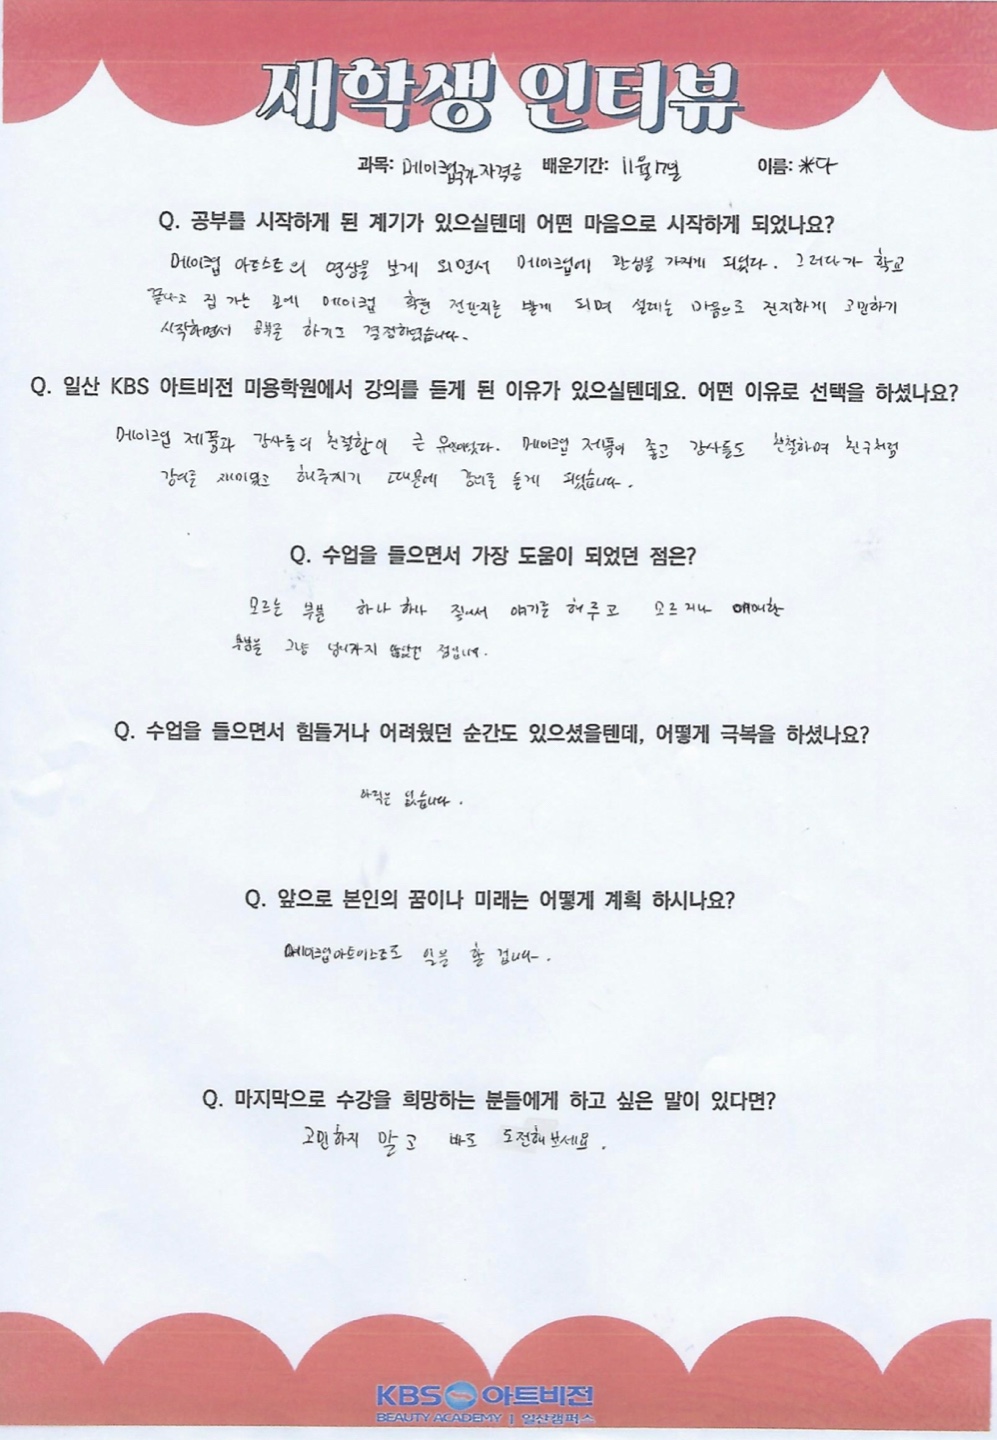 재학생 인터뷰
과목: 메이크업국가자격증 배운기간: 11월17일 이름: *다
Q. 공부를 시작하게 된 계기가 있으실텐데 어떤 마음으로 시작하게 되었나요?
메이크업 아트스트의 영상을 보게 되면서 메이크업에 관심을 가지게 되었다. 그러다가 학교
끝나고 집 가는 길에 메이크업 학원 전단지를 받게 되며 설레는 마음으로 진지하게 고민하기
시작하면서 공부를 하기로 결정하였습니다.
Q. 일산 KBS 아트비전 미용학원에서 강의를 듣게 된 이유가 있으실텐데요. 어떤 이유로 선택을 하셨나요?
메이크업 제품과 강사들의 친절함이 큰 . 메이크업 제품이 좋고 강사들도 친절하며 친구처럼
강의를 재미있고 해주시기 때문에 강의를 듣게 되었습니다.
Q. 수업을 들으면서 가장 도움이 되었던 점은?
모르는 부분 하나 하나 짚어서 얘기를 해주고 모르거나 애매한
부분을 그냥 넘어가지 않았던 점입니다.
Q. 수업을 들으면서 힘들거나 어려웠던 순간도 있으셨을텐데, 어떻게 극복을 하셨나요?
아직은 없습니다.
Q. 앞으로 본인의 꿈이나 미래는 어떻게 계획 하시나요?
메이크업아티스트로 일을 할 겁니다.
Q. 마지막으로 수강을 희망하는 분들에게 하고 싶은 말이 있다면?
고민하지 말고 바로 도전해보세요.
KBS 아트비전
BEAUTY ACADEMY | 일산캠퍼스